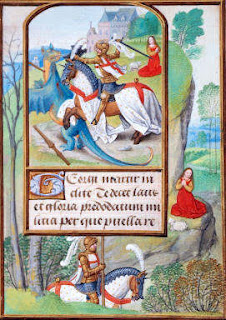 Georgi martir in
clite Te decet laus
et gloria predotatum mi
litia per quem puella re